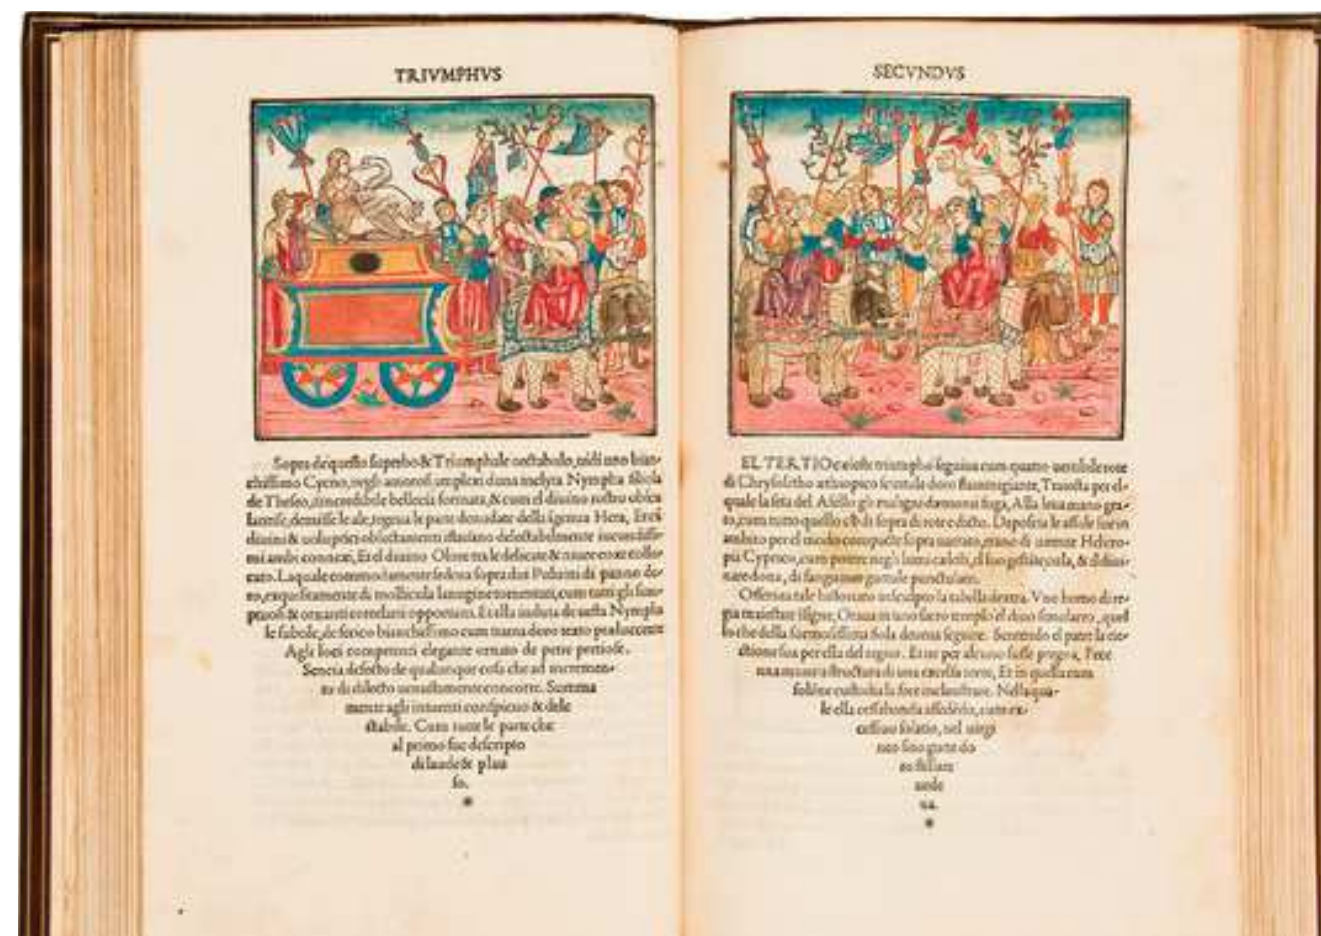 TRIVMPHVS
Sopra de questo superbo & Triumphale uectabulo, uidi uno bian-
chissimo Cycno, negli amorosi amplexi duna inclyta Nympha filiola
de Theseo, dincredibile bellecia formata, & cum el diuino rostro
le ale, tegeua le parte denudate della Hera, Et cũ
diuini & uoluptici oblectamenti delectabilmente iucundissi-
mi ambi connexi, Et el diuino Olore tra le delicate & niuee coxe collo-
cato. Laquale commodamente sedeua sopra dui Puluini di panno do-
ro, exquisitamente di mollicula lanugine tomentati, cum tutti gli sum-
ptuosi & ornanti correlarii opportuni. Et ella induta de uesta Nympha
le subtile, de serico bianchissimo cum trama doro texto præluccente
Agli loci competenti elegante ornato de petre pretiose.
Sencia defecto de qualunque cosa che ad incremen-
to di dilecto uenustamente concorre. Summa
mente agli intuenti conspicuo & dele
ctabile. Cum tutte le parte che
al primo fue descripto
di laude & plau
so.
*
SECVNDVS
EL TERTIO cæleste triumpho seguiua cum quatro uertibile rote
di Chrysolitho æthiopico scintule doro flammigiante, Traiecta per el-
quale la seta del Asello gli maligni dæmonii fuga, Alla leua mano gra-
to, cum tutto quello di sopra di rote e dicto. Daposcia le assule sue in
ambito per el modo compacte sopra narrato, erano di uirente Helitro-
pia Cyprico, cum potere negli lumi cælesti, el suo gestate cœla, & diuina-
re dona, di sanguinee guttule punctulato.
Offeriua tale historiato insculpto la tabella dextra. Vno homo di re-
gia maiestate isigne, Oraua in uno sacro templo el diuo simulacro, quel
lo che della formosissima fiola deueua seguire. Sentendo el patre la eie-
ctione sua per ella del regno. Et ne per alcuno fusse pregna, Fece
una munita structura di una excelsa torre, Et in quella cum
solenne custodia la fece inclaustrare. Nella qua-
le ella cessabonda assedendo, cum ex-
cessiuo solatio, nel uirgi
neo sino gutte do
ro stillare
uede
ua.
*